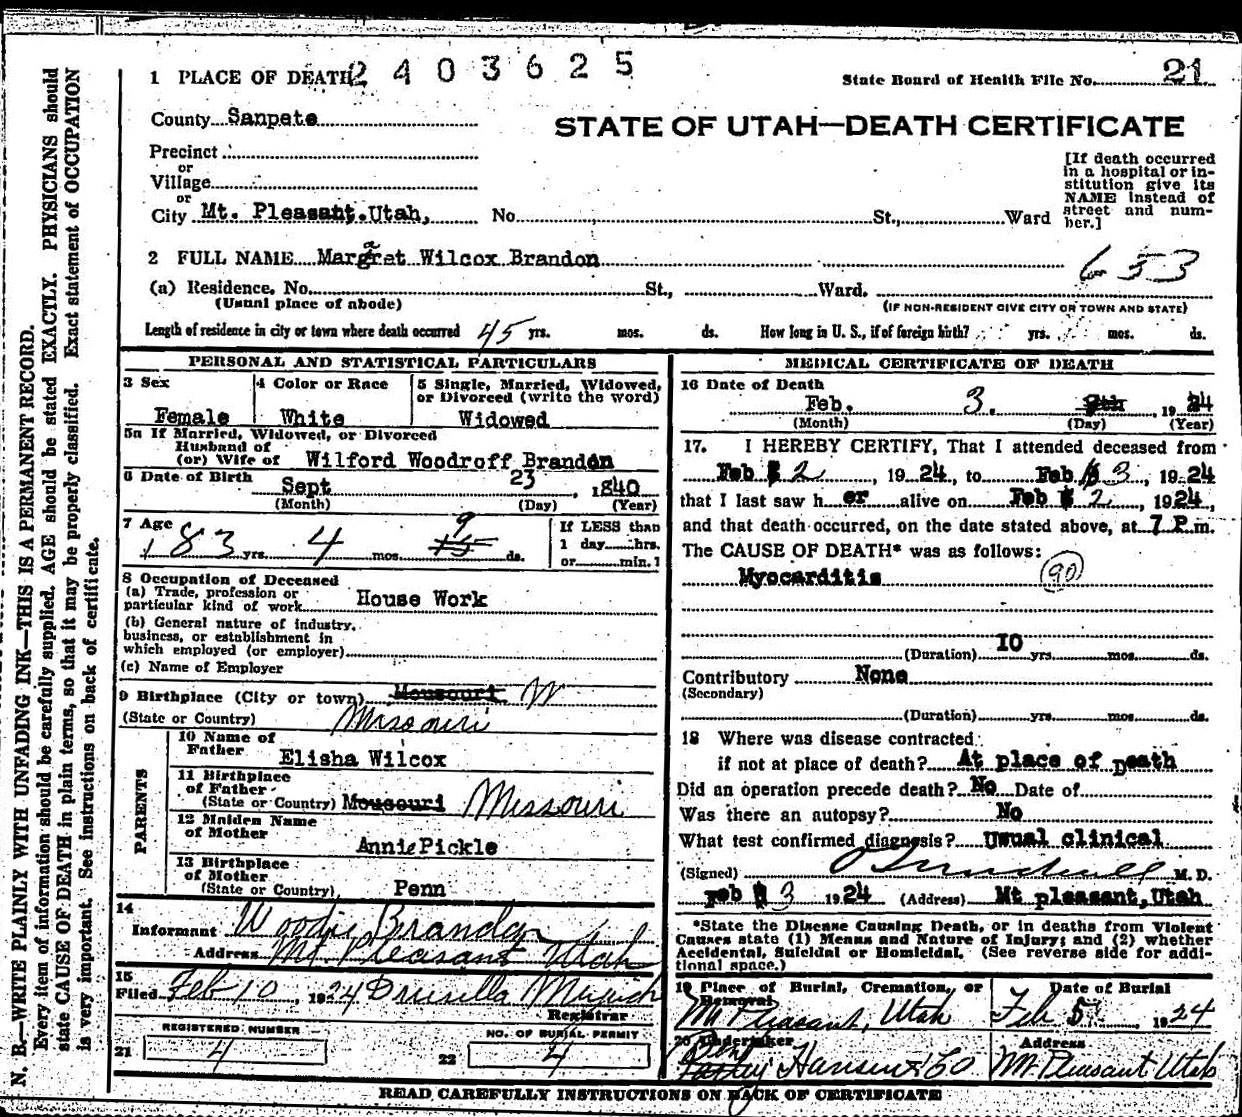 N. B.—WRITE PLAINLY WITH UNFADING INK—THIS IS A PERMANENT RECORD.
Every item of information should be carefully supplied. AGE should be stated EXACTLY. PHYSICIANS should
state CAUSE OF DEATH in plain terms, so that it may be properly classified. Exact statement of OCCUPATION
is very important. See instructions on back of certificate.
1 PLACE OF DEATH 2403625 State Board of Health File No. 21
County Sanpete
STATE OF UTAH—DEATH CERTIFICATE
Precinct
or
Village
or
City Mt. Pleasant.Utah, No. St., Ward
[If death occurred
in a hospital or in-
stitution give its
NAME instead of
street and num-
ber.]
2 FULL NAME Margaret Wilcox Brandon 653
(a) Residence. No. St., Ward.
(Usual place of abode) (IF NON-RESIDENT GIVE CITY OR TOWN AND STATE)
Length of residence in city or town where death occurred 45 yrs. mos. ds. How long in U. S., if of foreign birth? yrs. mos. ds.
PERSONAL AND STATISTICAL PARTICULARS
3 Sex 4 Color or Race 5 Single, Married, Widowed,
or Divorced (write the word)
Female White Widowed
5a If Married, Widowed, or Divorced
Husband of
(or) Wife of Wilford Woodroff Brandon
6 Date of Birth Sept 23, 1840
(Month) (Day) (Year)
7 Age 83 yrs. 4 mos. 9 15 ds.
If LESS than
1 day hrs.
or min.?
8 Occupation of Deceased
(a) Trade, profession or
particular kind of work House Work
(b) General nature of industry,
business, or establishment in
which employed (or employer)
(c) Name of Employer
9 Birthplace (City or town) Mousouri
(State or Country) Missouri
PARENTS
10 Name of
Father Elisha Wilcox
11 Birthplace
of Father
(State or Country) Mousouri Missouri
12 Maiden Name
of Mother
Annie Pickle
13 Birthplace
of Mother
(State or Country) Penn
14
Informant Woodie Brandon
Address Mt Pleasant Utah
15
Filed Feb 10, 1924 Drusilla
Registrar
REGISTERED NUMBER NO. OF BURIAL PERMIT
21 4 22 4
MEDICAL CERTIFICATE OF DEATH
16 Date of Death
Feb. 3. 1924
(Month) (Day) (Year)
17. I HEREBY CERTIFY, That I attended deceased from
Feb 2, 1924, to Feb 3, 1924
that I last saw her alive on Feb 2, 1924,
and that death occurred, on the date stated above, at 7 P.m.
The CAUSE OF DEATH* was as follows:
Myocarditis 90
(Duration) 10 yrs. mos. ds.
Contributory None
(Secondary)
(Duration) yrs. mos. ds.
18 Where was disease contracted
if not at place of death? At place of Death
Did an operation precede death? No Date of
Was there an autopsy? No
What test confirmed diagnosis? Usual clinical
(Signed) M. D.
Feb 3 1924 (Address) Mt pleasant, Utah
*State the Disease Causing Death, or in deaths from Violent
Causes state (1) Means and Nature of Injury; and (2) whether
Accidental, Suicidal or Homicidal. (See reverse side for addi-
tional space.)
19 Place of Burial, Cremation, or
Removal
Date of Burial
Mt Pleasant, Utah Feb 5, 1924
20 Undertaker Address
Hansen & Co Mt Pleasant Utah
READ CAREFULLY INSTRUCTIONS ON BACK OF CERTIFICATE